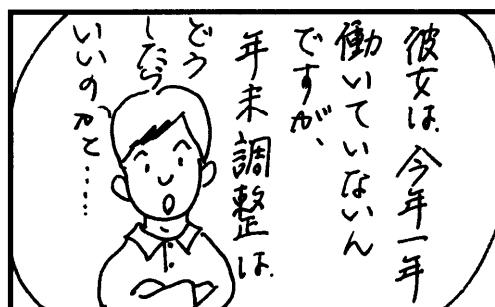 彼女は、今年一年
働いていないん
ですが、
年末調整は、
どう
したら
いいのかと……